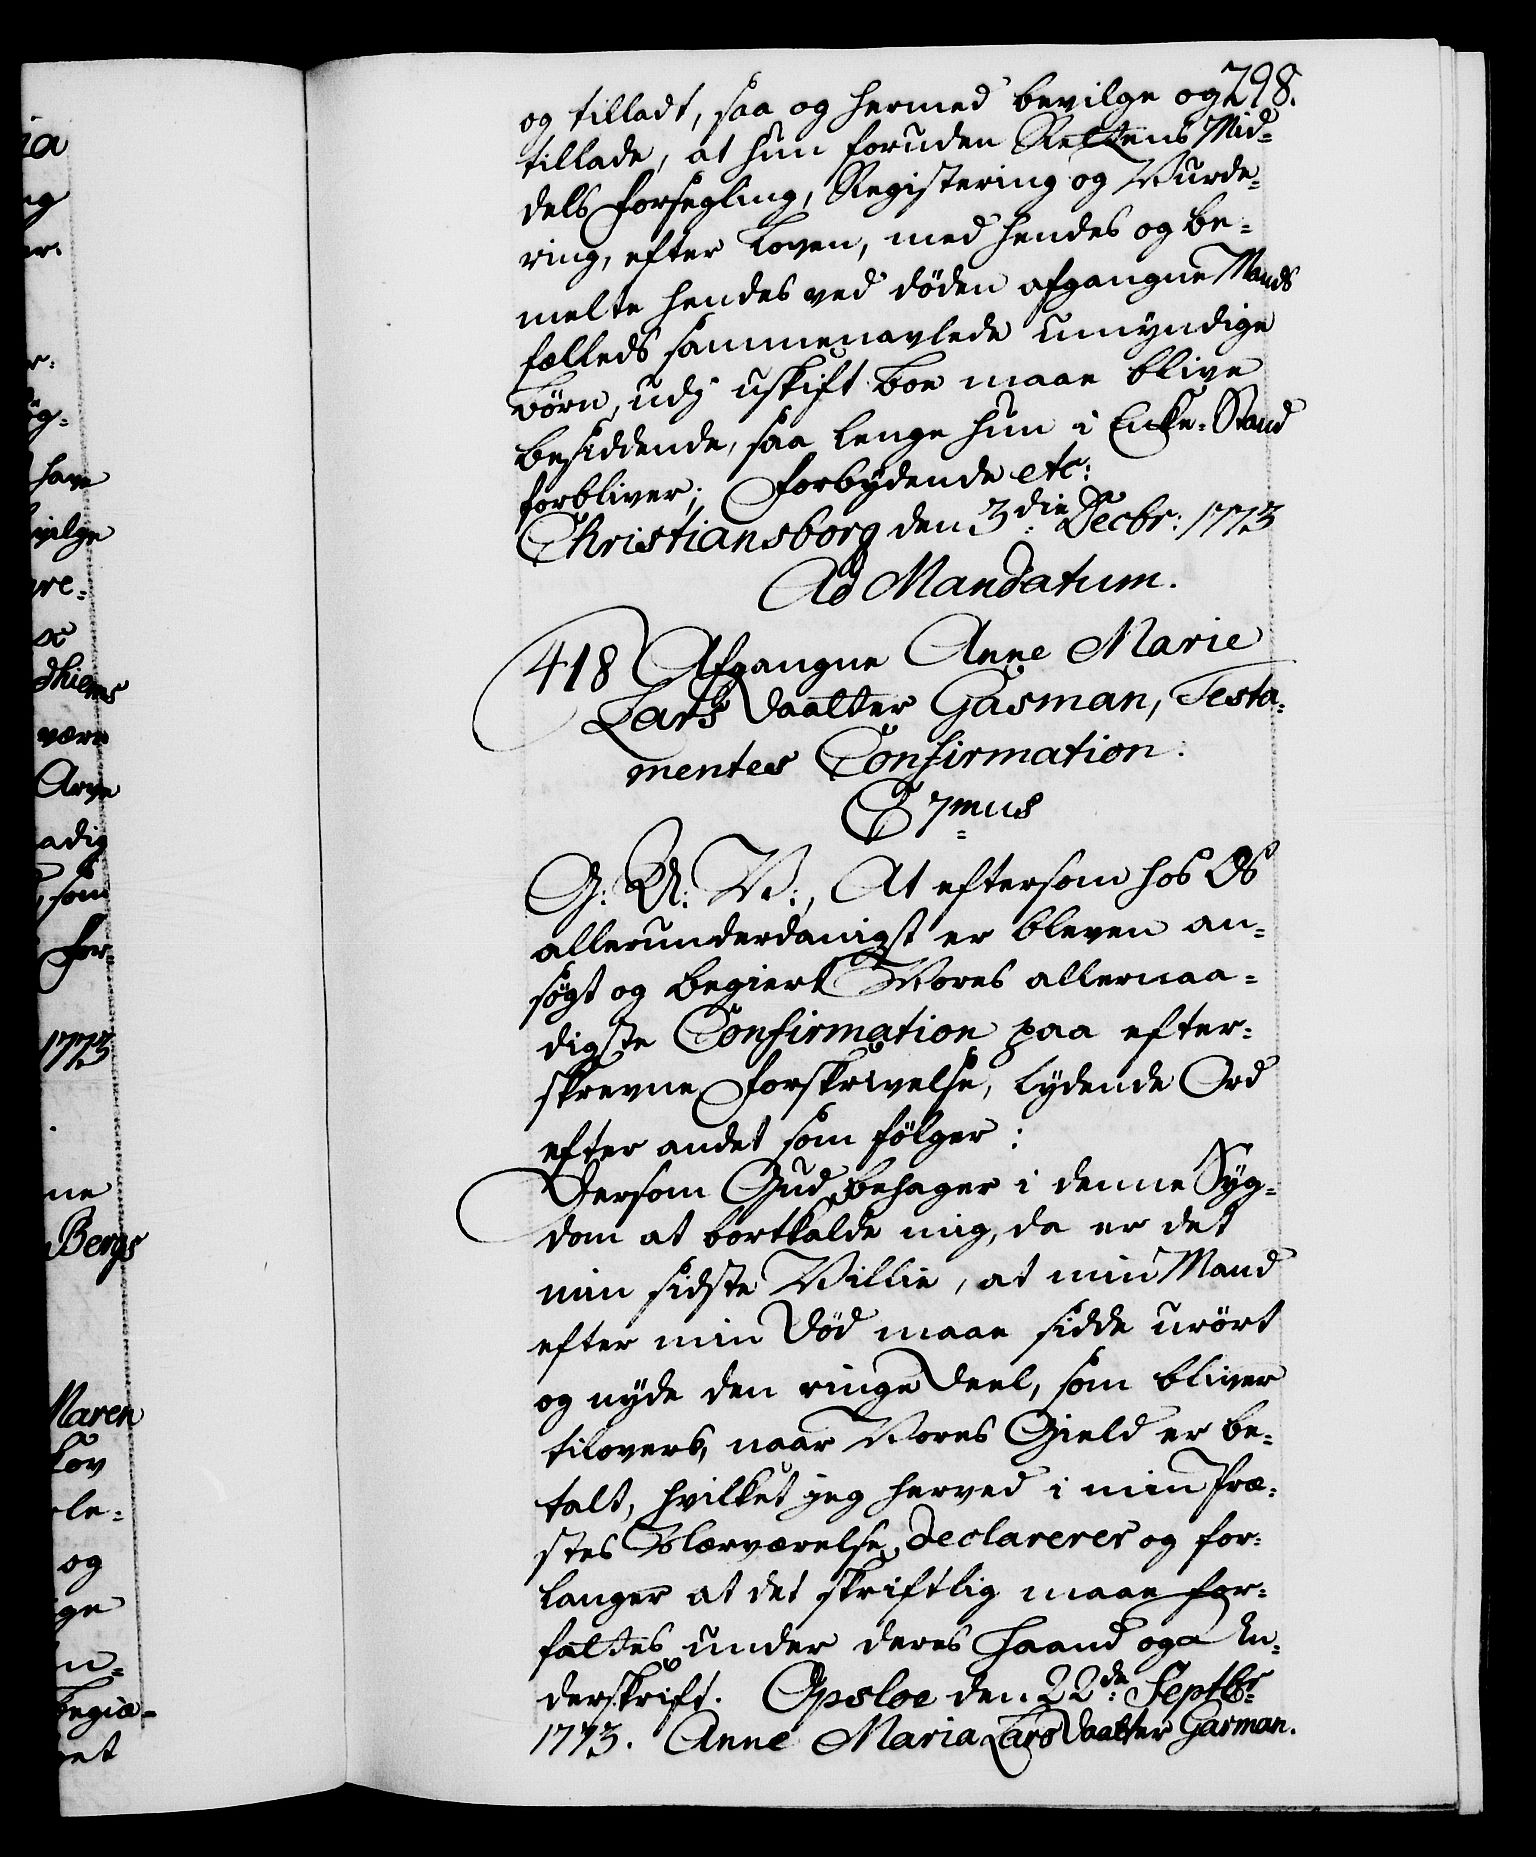 798.
og tilladt, saa og hermed bevilge og
tillade, at hun foruden Rettens Mid-
dels Forsegling, Registering og Vurde-
ring, efter Loven, med hendes og be-
melte hendes ved døden afgangne Mands
fælleds sammenavlede umyndige
børn, udj uskift Boe maae blive
besiddende, saa lenge hun i Enke-Stand
forbliver; Forbydende etc:
Christiansborg den 3die Decbr: 1773
Ad Mandatum.
418 Afgangne Anne Marie
Lars Daatter Gasman, Testa-
mentes Confirmation.
C 7mus
G: A: V:, At eftersom hos Os
allerunderdanigst er bleven an-
søgt og begiert Vores allernaa-
digste Confirmation paa efter-
skrevne Forskrivelse, lydende Ord
efter andet som følger:
Dersom Gud behager i denne Syg-
dom at bortkalde mig, da er det
min sidste Villie, at min Mand
efter min Død maae sidde urørt
og nyde den ringe Deel, som bliver
tilovers, naar Vores Gield er be-
talt, hvilket jeg herved i min Præ-
stes Nærværelse declarerer og for-
langer at det skriftlig maae for-
fattes under deres Haand og Un-
derskrift. Opsloe den 22de Septbr
1773. Anne Maria Lars Daatter Garman.
ia
ng
er.
r.
yg-
have
vilge
re-
dhiems
være
Arve
adig
som
for
1773
ne
Bergs
Maren
Lov
le-
og
ge
n-
begiæ-
et